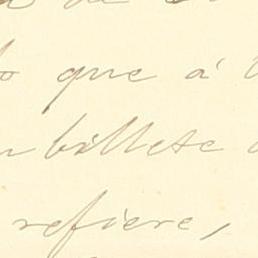 que á
billete
refiere,